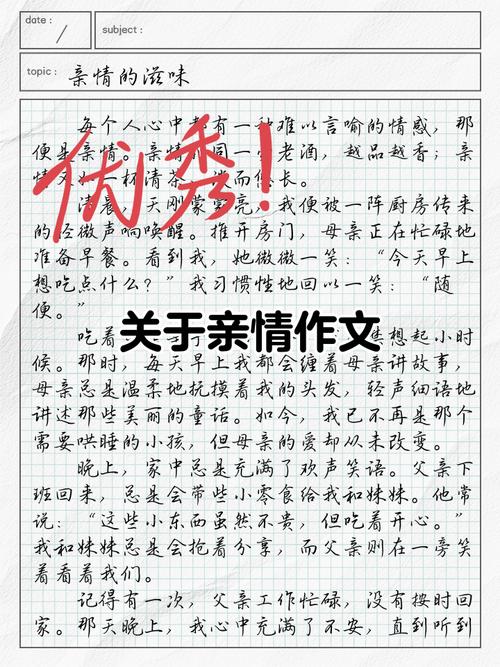 date :
subject :
topic : 亲情的滋味
每个人心中都有一种难以言喻的情感，那
便是亲情。亲情同一老酒，越品越香；亲
情又一杯清茶，淡而悠长。
清晨，天刚蒙蒙亮，我便被一阵厨房传来
的轻微声响唤醒。推开房门，母亲正在忙碌地
准备早餐。看到我，她微微一笑：“今天早上
想吃点什么？”我习惯性地回以一笑：“随
便。”
优秀！
吃着想起小时
关于亲情作文
候。那时，每天早上我都会缠着母亲讲故事，
母亲总是温柔地抚摸着我的头发，轻声细语地
讲述那些美丽的童话。如今，我已不再是那个
需要哄睡的小孩，但母亲的爱却从未改变。
晚上，家中总是充满了欢声笑语。父亲下
班回来，总是会带些小零食给我和妹妹。他常
说：“这些小东西虽然不贵，但吃着开心。”
我和妹妹总是会抢着分享，而父亲则在一旁笑
着看着我们。
记得有一次，父亲工作忙碌，没有按时回
家。那天晚上，我心中充满了不安，直到听到